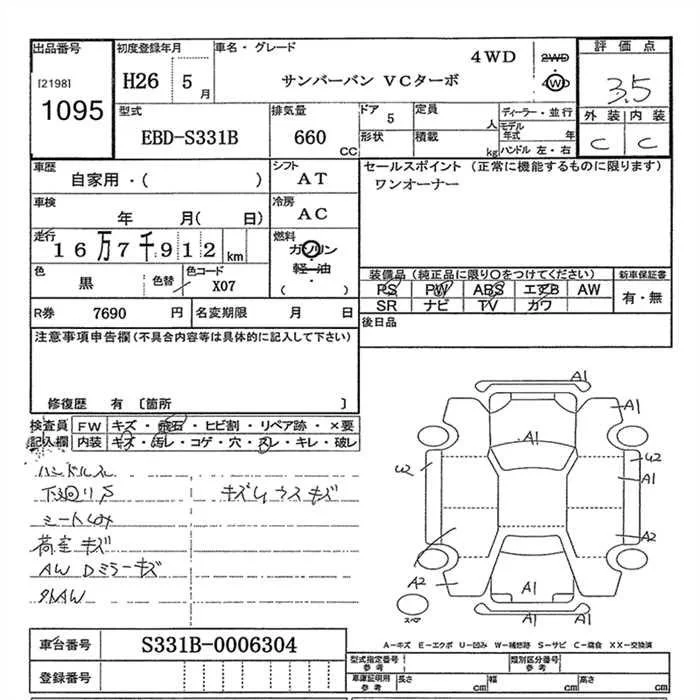 出品番号
[2198]
1095
初度登録年月
H26 5月
車名・グレード
サンバーバン VCターボ
4WD
2WD
・
4WD
評価点
3.5
外装 内装
C C
型式
EBD-S331B
排気量
660 CC
ドア 5
形状
定員 人
積載 kg
ディーラー・並行
モデル年式 年
ハンドル 左・右
車歴
自家用・( )
シフト
AT
セールスポイント (正常に機能するものに限ります)
ワンオーナー
車検
年 月( 日)
冷房
AC
走行
16万7千912km
燃料
ガソリン
・
軽・油
( )
色
黒
色替
色コード
X07
装備品(純正品に限り○をつけてください)
PS PW ABS エアB AW
SR ナビ TV カワ
新車保証書
有・無
R券 7690 円
名変期限 月 日
後日品
注意事項申告欄(不具合内容等は具体的に記入して下さい)
修復歴 有 〔箇所 〕
検査員記入欄
FW キズ・飛石・ヒビ割・リペア跡・×要
内装 キズ・汚レ・コゲ・穴・スレ・キレ・破レ
ハンドルスレ
下廻りサ
キズ
シート
荷室キズ
AW Dミラーキズ
外AW
A1
A1
A1
W2
W2
A1
A2
A2
A1
A1
スペア
車台番号 S331B-0006304
登録番号
A-キズ E-エクボ U-凹み W-補修跡 S-サビ C-腐食 XX-交換済
型式指定番号 参考
類別区分番号 参考
車庫証明用 参考
長さ cm
幅 cm
高さ cm